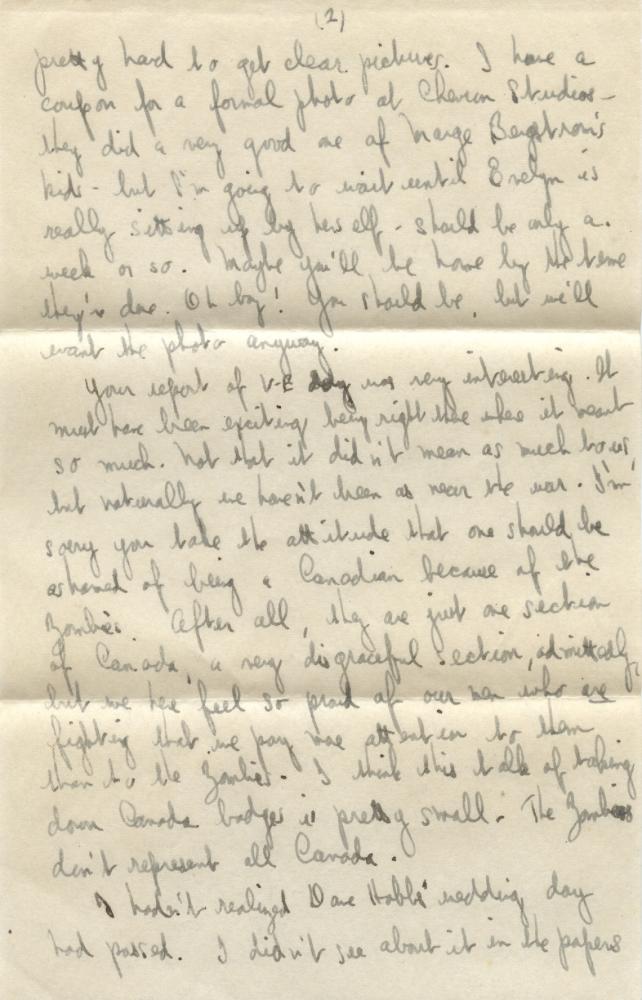 (2)
pretty hard to get clear pictures. I have a
coupon for a formal photo at Studios -
they did a very good one of Marge Bergstrom's
kids - but I'm going to wait until Evelyn is
really sitting up by herself - should be only a
week or so. Maybe you'll be home by the time
they're done. Oh boy! You should be, but we'll
want the photo anyway.
Your report of V-E day was very interesting. It
must have been exciting being right there where it meant
so much. Not that it didn't mean as much to us,
but naturally we haven't been as near the war. I'm
sorry you take the attitude that one should be
ashamed of being a Canadian because of the
Zombies. After all, they are just one section
of Canada, a very disgraceful section, admittedly,
but we here feel so proud of our men who are
fighting that we pay more attention to them
than to the Zombies. I think this talk of taking
down Canada badges is pretty small. The Zombies
don't represent all Canada.
I hadn't realized Dave Hobbs' wedding day
had passed. I didn't see about it in the papers